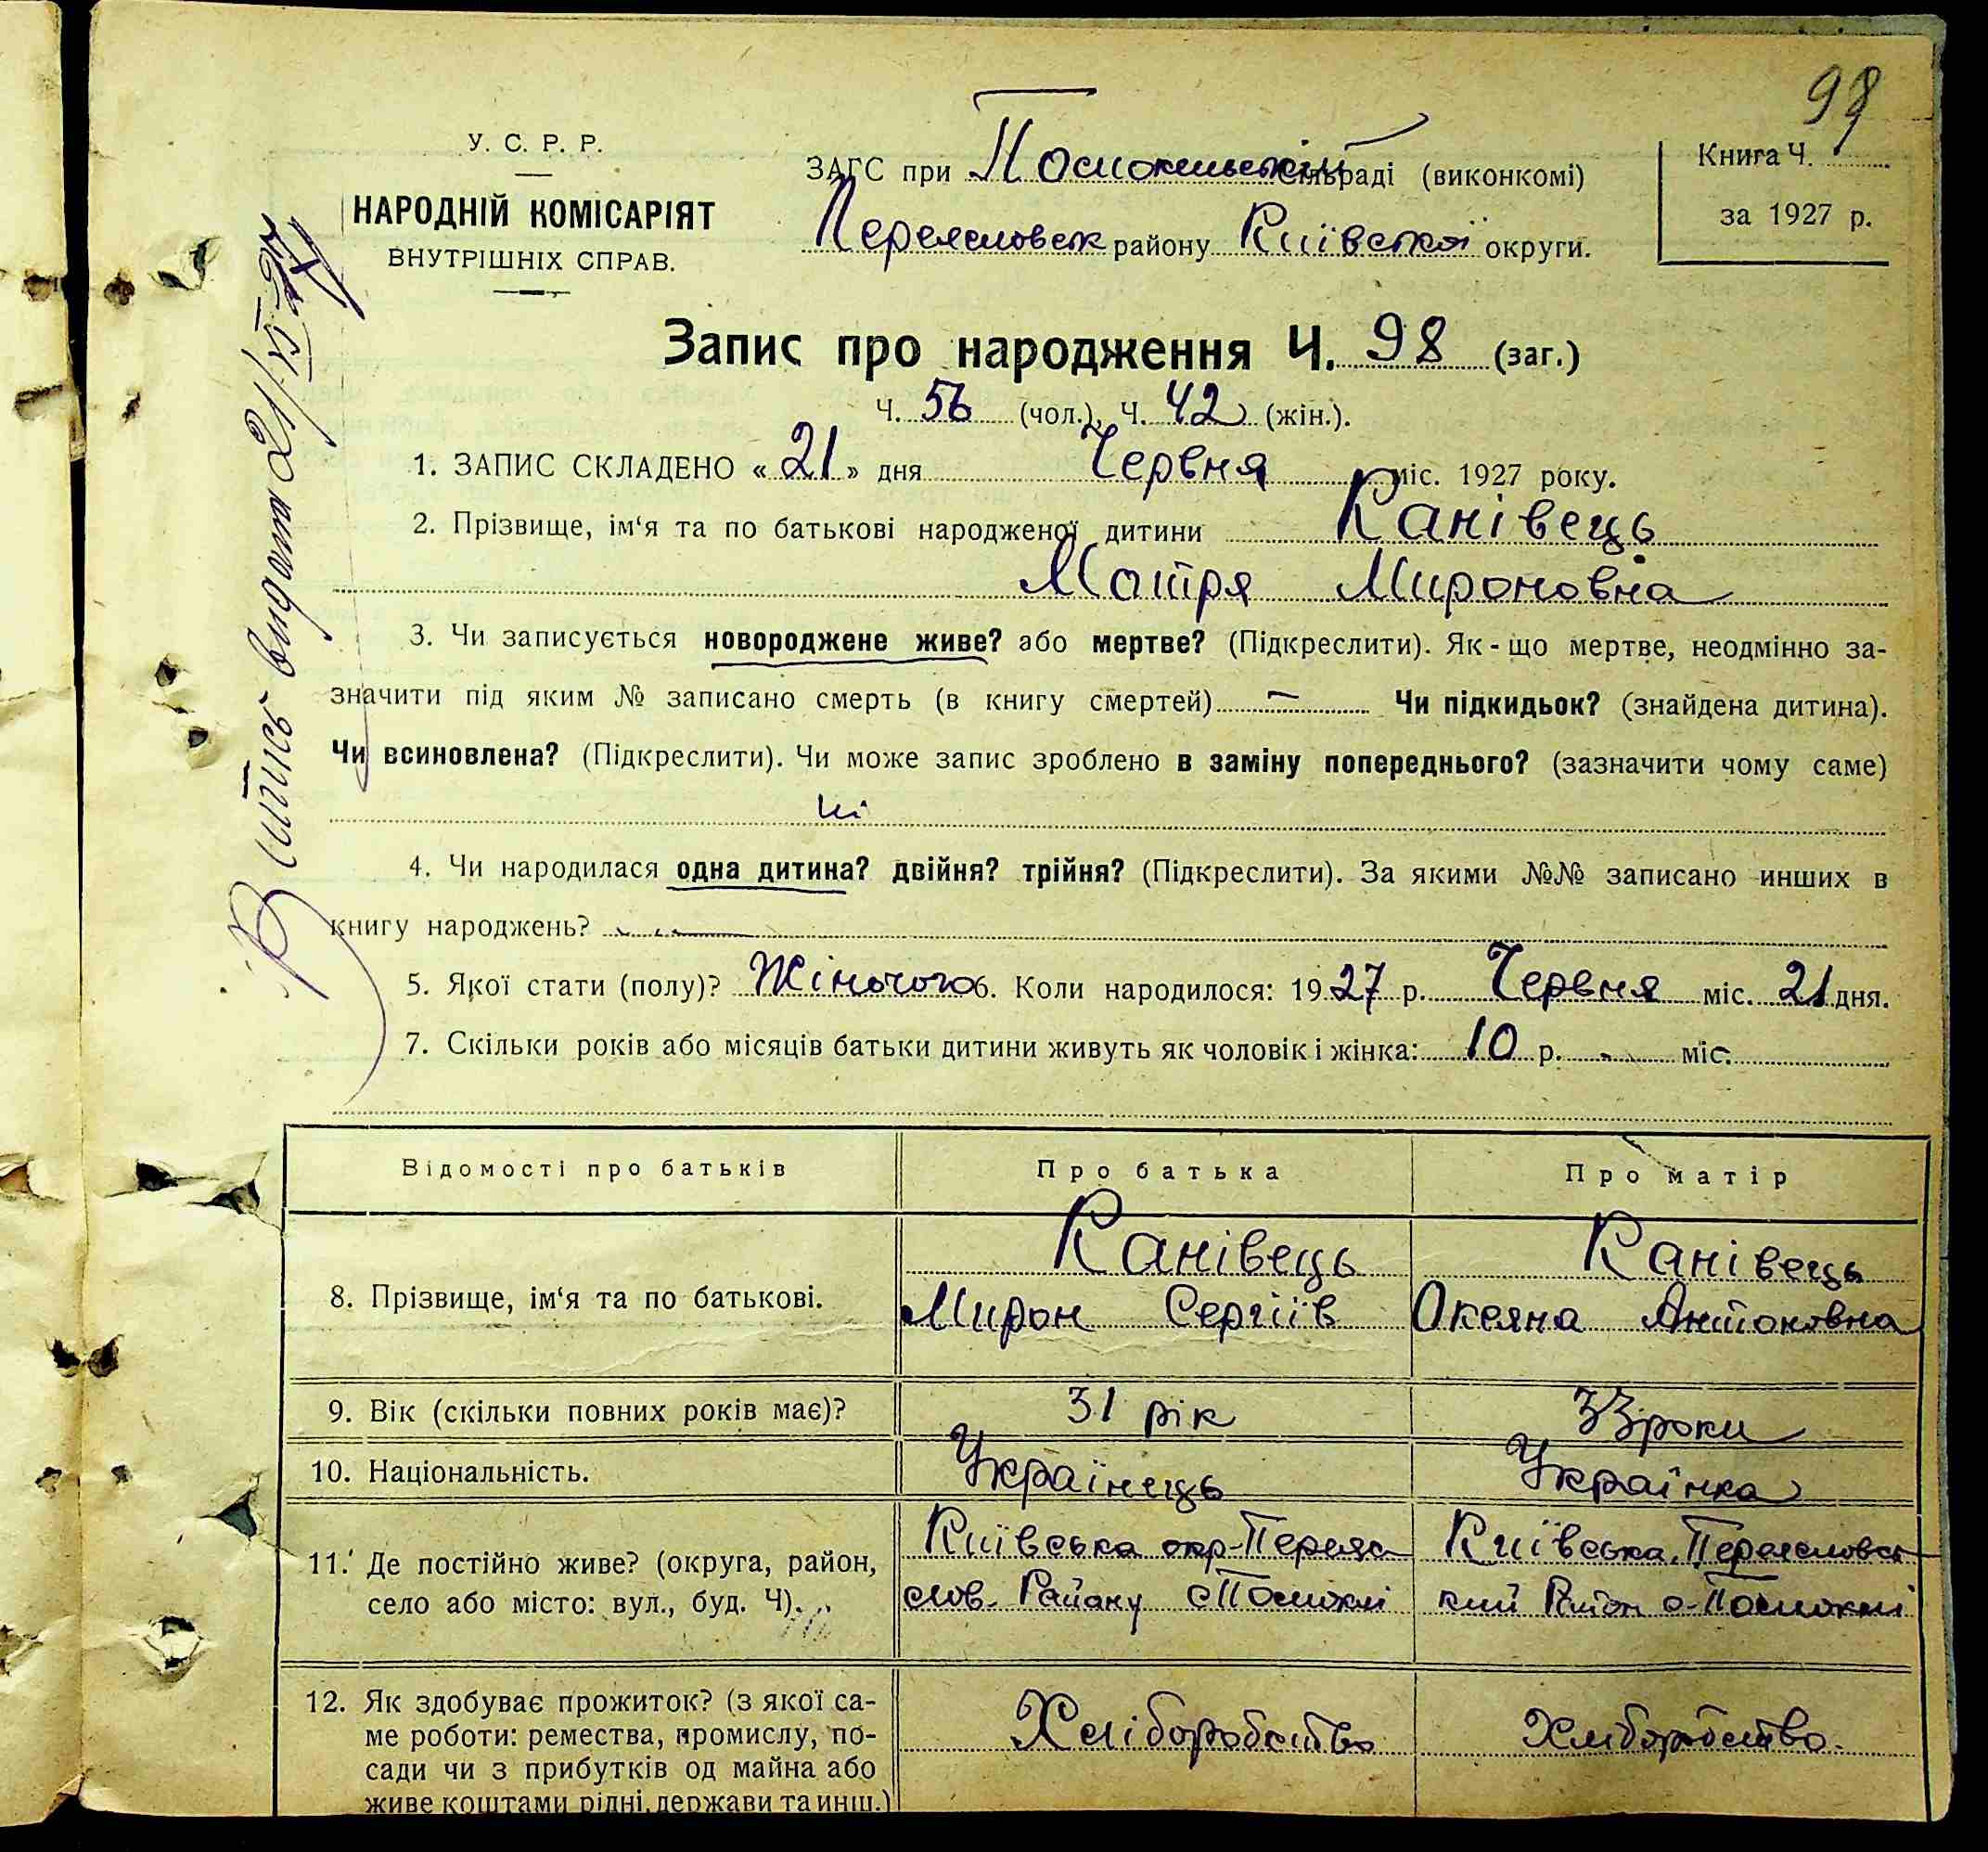 98
У. С. Р. Р.
НАРОДНІЙ КОМІСАРІЯТ
ВНУТРІШНІХ СПРАВ.
ЗАГС при сільраді (виконкомі)
Переяславськ району Київської округи.
Книга Ч.
за 1927 р.
Випись видана 21/VI 27
Запис про народження Ч. 98 (заг.)
Ч. 56 (чол.), Ч. 42 (жін.).
1. ЗАПИС СКЛАДЕНО « 21 » дня Червня міс. 1927 року.
2. Прізвище, ім‘я та по батькові народженої дитини Канівець
Мотря Мироновна
3. Чи записується новороджене живе? або мертве? (Підкреслити). Як - що мертве, неодмінно за-
значити під яким № записано смерть (в книгу смертей) — Чи підкидьок? (знайдена дитина).
Чи всиновлена? (Підкреслити). Чи може запис зроблено в заміну попереднього? (зазначити чому саме)
ні
4. Чи народилася одна дитина? двійня? трійня? (Підкреслити). За якими №№ записано инших в
книгу народжень?
5. Якої стати (полу)? Жіночого 6. Коли народилося: 1927 р. Червня міс. 21 дня.
7. Скільки років або місяців батьки дитини живуть як чоловік і жінка: 10 р. - міс.
Відомості про батьків Про батька Про матір
8. Прізвище, ім‘я та по батькові. Канівець Мирон Сергіїв Канівець Оксяна Антоновна
9. Вік (скільки повних років має)? 31 рік 33 роки
10. Національність. Українець Українка
11. Де постійно живе? (округа, район, Київська окр. Переяс Київська, Переясловсь
село або місто: вул., буд. Ч). лов. Району кий Район
12. Як здобуває прожиток? (з якої са- Хліборобство Хліборобство.
ме роботи: ремества, промислу, по-
сади чи з прибутків од майна або
живе коштами рідні, держави та инш.)